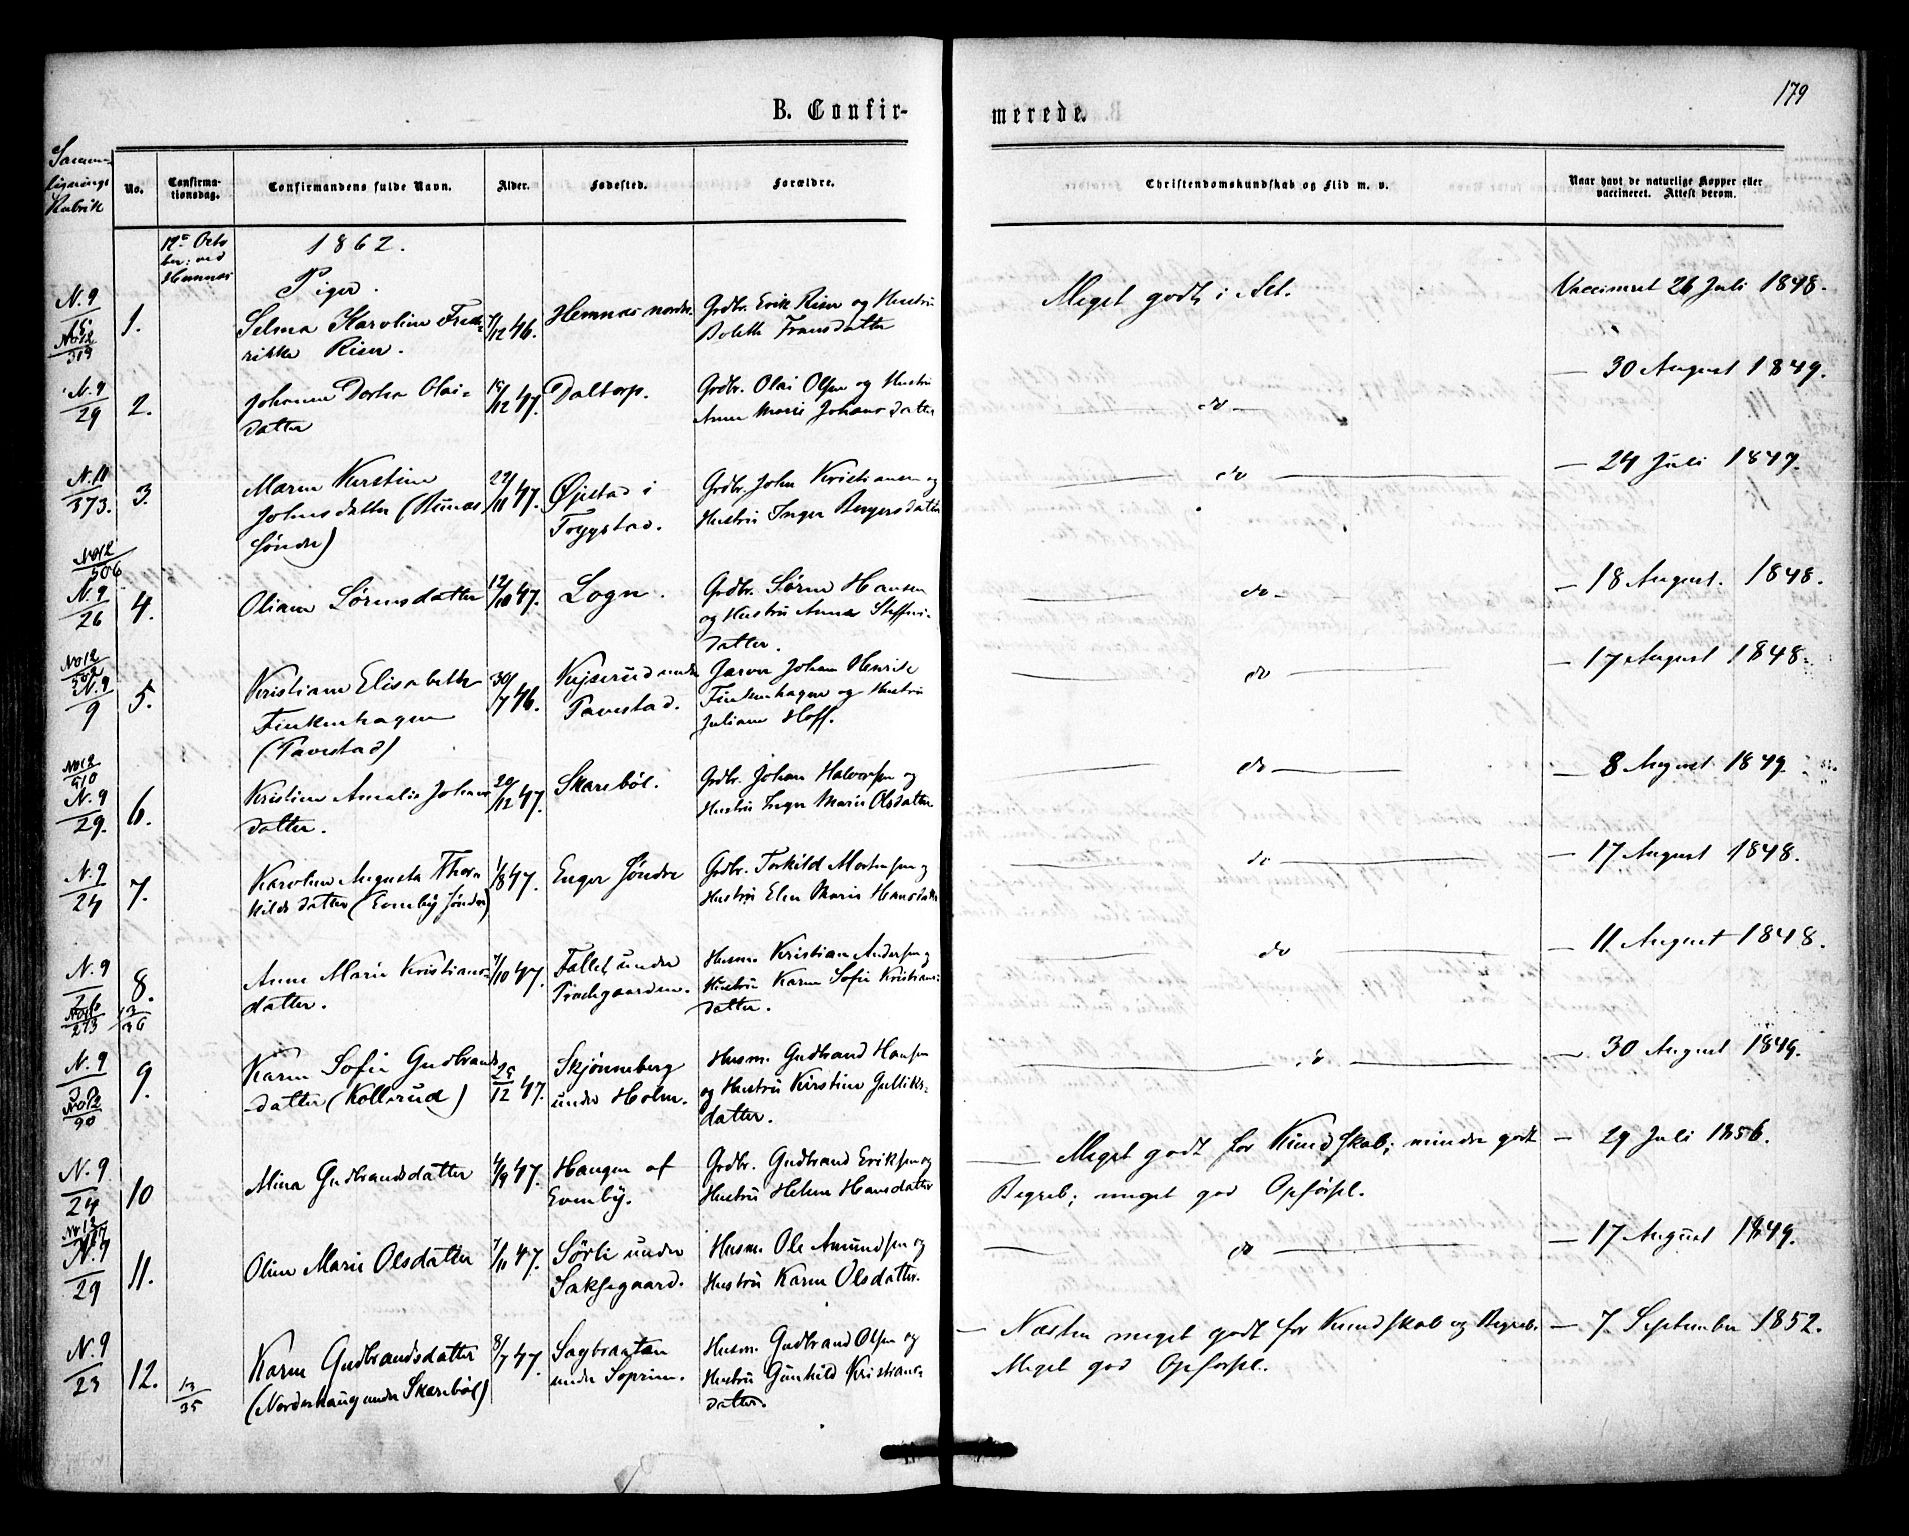 179
B. Confir-
merede.
Sammen-
lignings
Rubrik
No.
Confirma-
tionsdag.
Confirmandens fulde Navn.
Alder.
Fødested.
Forældre.
Christendomskundskab og Flid m. v.
Naar havt de naturlige Kopper eller
vaccineret. Attest derom.
12te Octo
ber: ved
Hemnæs
1862.
Piger.
N. 9
15
No 12
1.
Selma Karoline Frede-
rikke Riser.
7/12 46.
Hemnæs nordre
Grdbr. Erik Riser og Hustru
Bolette Fransdatter
Meget godt i Alt.
Vaccineret 26 Juli 1848.
N. 9
29
2.
Johanne Dorthea Olai-
datter
15/12 47.
Daltorp.
Grdbr. Olai Olsen og Hustru
Anne Marie Johansdatter
do
— 30 August 1849.
N. 11
373.
3.
Maren Kirstine
Johnsdatter (
Søndre)
29/11 47.
Øjestad i
Trygstad.
Grdbr. John Kristiansen og
Hustru Inger Bergersdatter
do
— 24 Juli 1847.
No 12
506
N. 9
26
4.
Oliane Sørensdatter
12/10 47.
Logn.
Grdbr. Søren Hansen
og Hustru Anne Steffens-
datter.
do
— 18 August. 1848.
No 12
502
N. 9
9
5.
Kristiane Elisabeth
Finkenhagen
(Tavestad)
30/7 46.
Kejserud under
Tavestad.
Farver Johan Henrik
Finkenhagen og Hustru
Juliane Hoff.
do
— 17 August 1848.
No 12
510
N. 9
29.
6.
Kristine Amalie Johans
datter.
20/12 47.
Skarebøl.
Grdbr. Johan Halvorsen og
Hustru Inger Marie Olsdatter
do
— 8 August 1849.
N. 9
24
7.
Karoline Augusta Thor-
kildsdatter (Evenby Søndre)
1/8 47.
Enger Søndre
Grdbr. Torkild Mortensen og
Hustru Elen Marie Hansdatter
do
— 17 August 1848.
N. 9
26
273
8.
13
36
Anne Marie Kristians-
datter.
7/10 47.
Fallet under
Præstegaarden.
Husm. Kristian Andersen og
Hustru Karen Sofie Kristians-
datter.
do
— 11. August 1848.
N. 9
No 12
90
9.
Karen Sofie Gudbrands
datter (Kollerud)
25/12 47.
Skjønneberg
under Holm.
Husm. Gudbrand Hansen
og Hustru Kirstine Gulliks-
datter.
do
— 30 August 1849.
N. 9
24
10
Mina Gudbrandsdatter
4/9 47.
Haugen af
Evenby.
Grdbr. Gudbrand Eriksen og
Hustru Helene Hansdatter
— Meget godt for Kundskab; mindre godt
Begreb; meget god Opførsel.
— 29 Juli 1856.
No 12
N. 9
29
11.
Oline Marie Olsdatter
7/11 47.
Sørli under
Saksegaard.
Husm. Ole Amundsen og
Hustru Karen Olsdatter.
do
— 17 August 1849.
N. 9
23
12.
13
35
Karen Gudbrandsdatter
(Nordeshaug under Skarebøl)
8/7 47.
Sagbraatan
under Soprim.
Husm. Gudbrand Olsen og
Hustru Gunhild Kristians-
datter.
— Næsten meget godt for Kundskab og Begreb.
Meget god Opførsel.
— 7. September 1852.